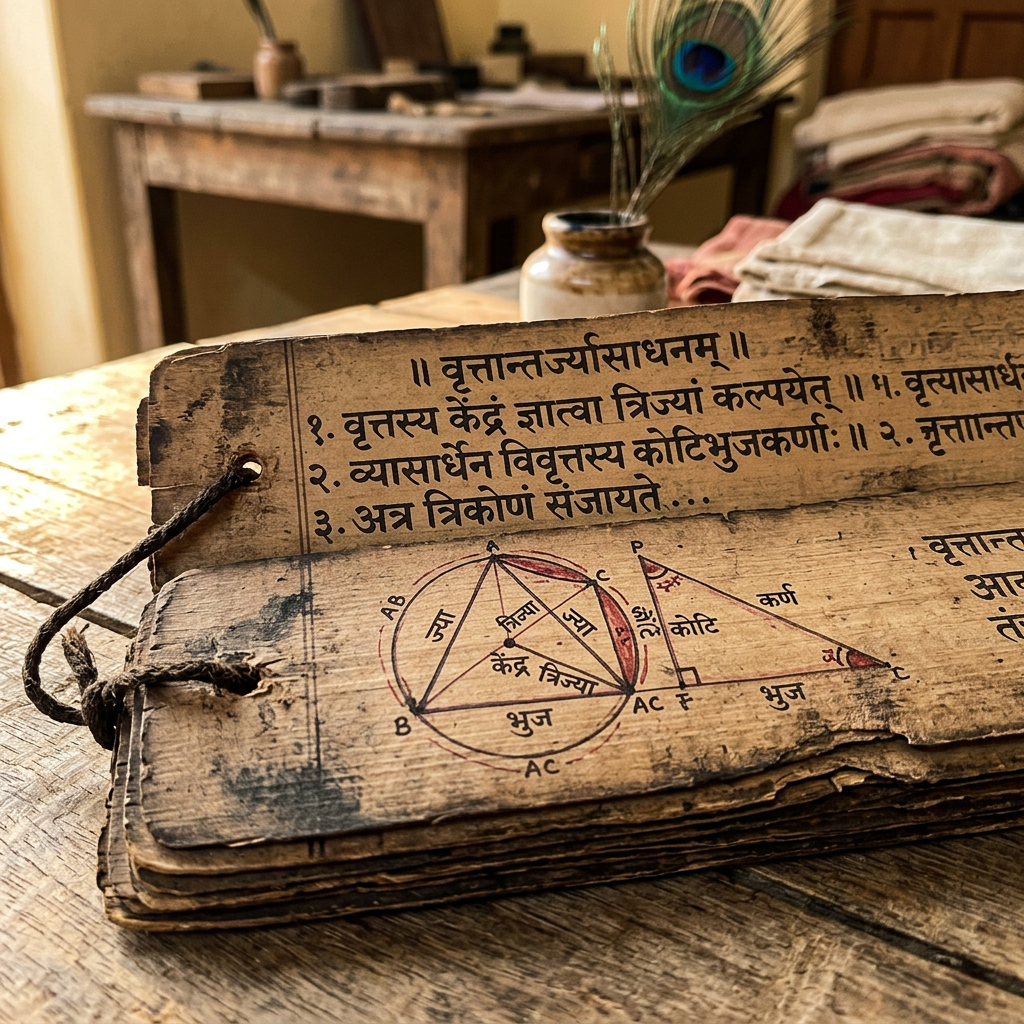 ॥ वृत्तान्तर्ज्यासाधनम् ॥
१. वृत्तस्य केंद्रं ज्ञात्वा त्रिज्यां कल्पयेत् ॥ १. वृत्यासार्ध
२. व्यासार्धेन विवृत्तस्य कोटिभुजकर्णाः ॥ २.
३. अत्र त्रिकोणं संजायते...
A
C
AB
ज्या
त्रिज्या
ज्या
केंद्र त्रिज्या
B
भुज
AC
AC
P
कर्ण
कोटि
F
भुज
वृत्तान्त